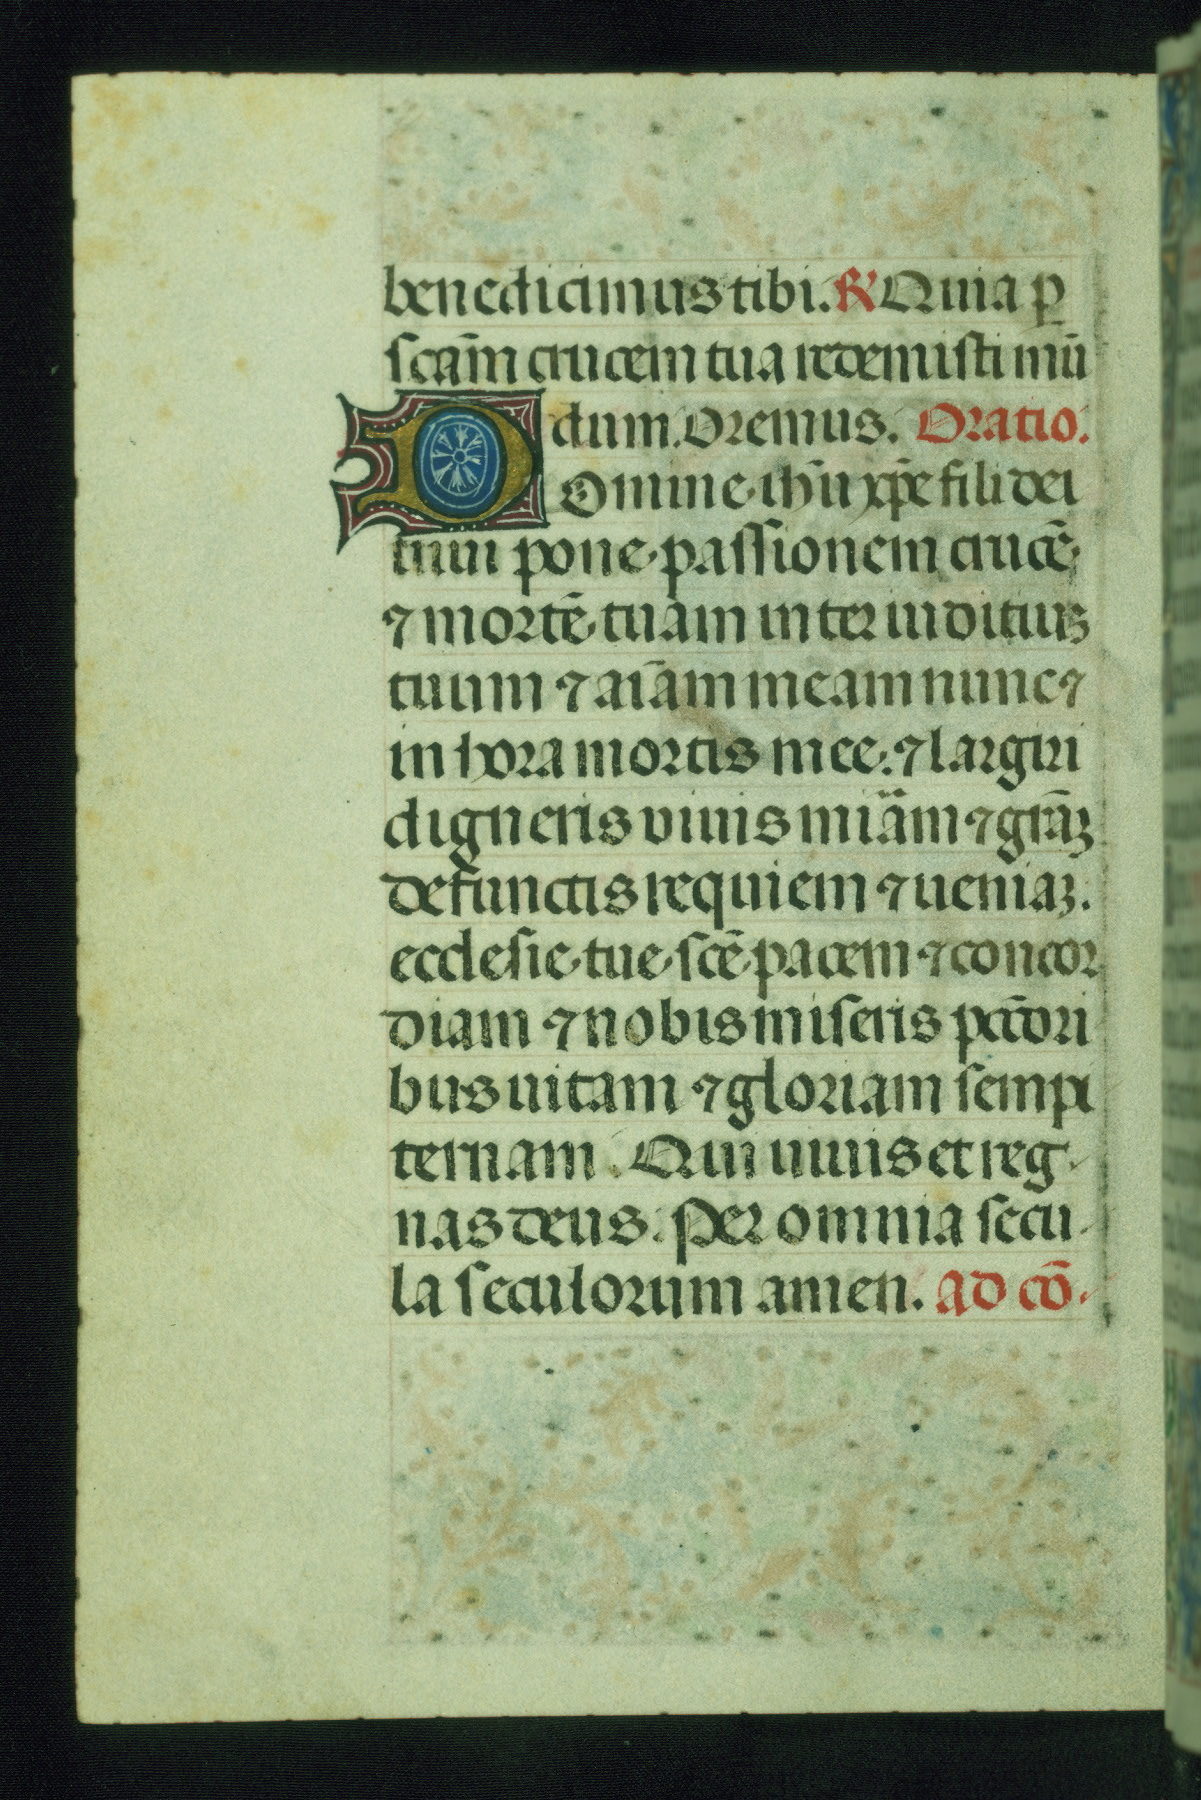 benedicimus tibi. R Quia p̲
scām crucem tua redemisti mū
dum. Oremus. Oratio.
Domine ihū xp̄e fili dei
uiui pone passionem crucē
⁊ mortē tuam inter iuditiuȝ
tuum ⁊ aīam meam nunc ⁊
in hora mortis mee: ⁊ largiri
digneris viuis miāam ⁊ grāȝ
defunctis requiem ⁊ ueniaȝ.
ecclesie tue scē pacem ⁊ concor
diam ⁊ nobis miseris pctōri
bus uitam ⁊ gloriam sempi
ternam. Qui uiuis et reg
nas deus. Per omnia secu
la seculorum amen. ad cō.